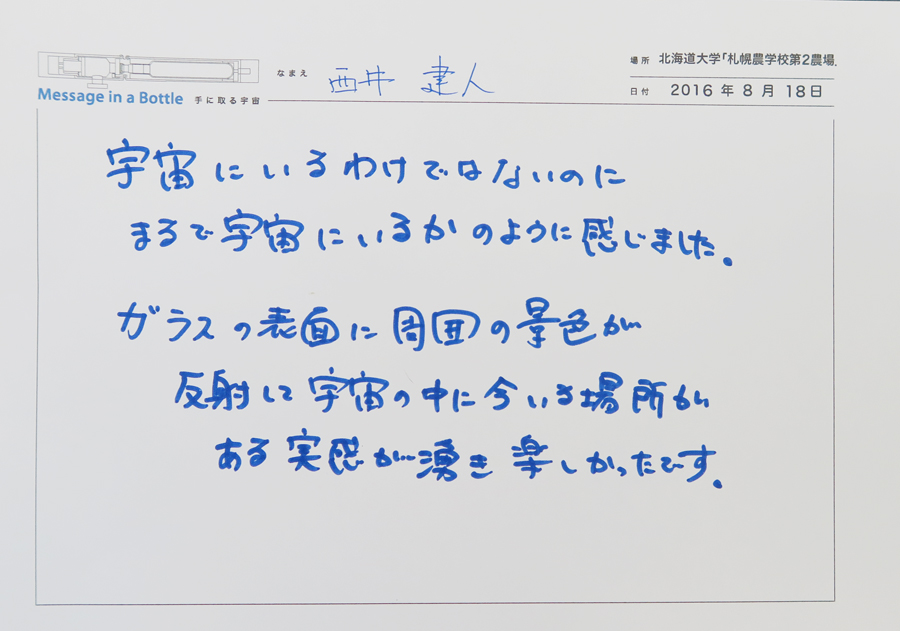 なまえ 西井 建人
場所 北海道大学「札幌農学校第2農場」
Message in a Bottle 手に取る宇宙
日付 2016年8月18日
宇宙にいるわけではないのに
まるで宇宙にいるかのように感じました。
ガラスの表面に周囲の景色が
反射して宇宙の中に今いる場所が
ある実感が湧き楽しかったです。